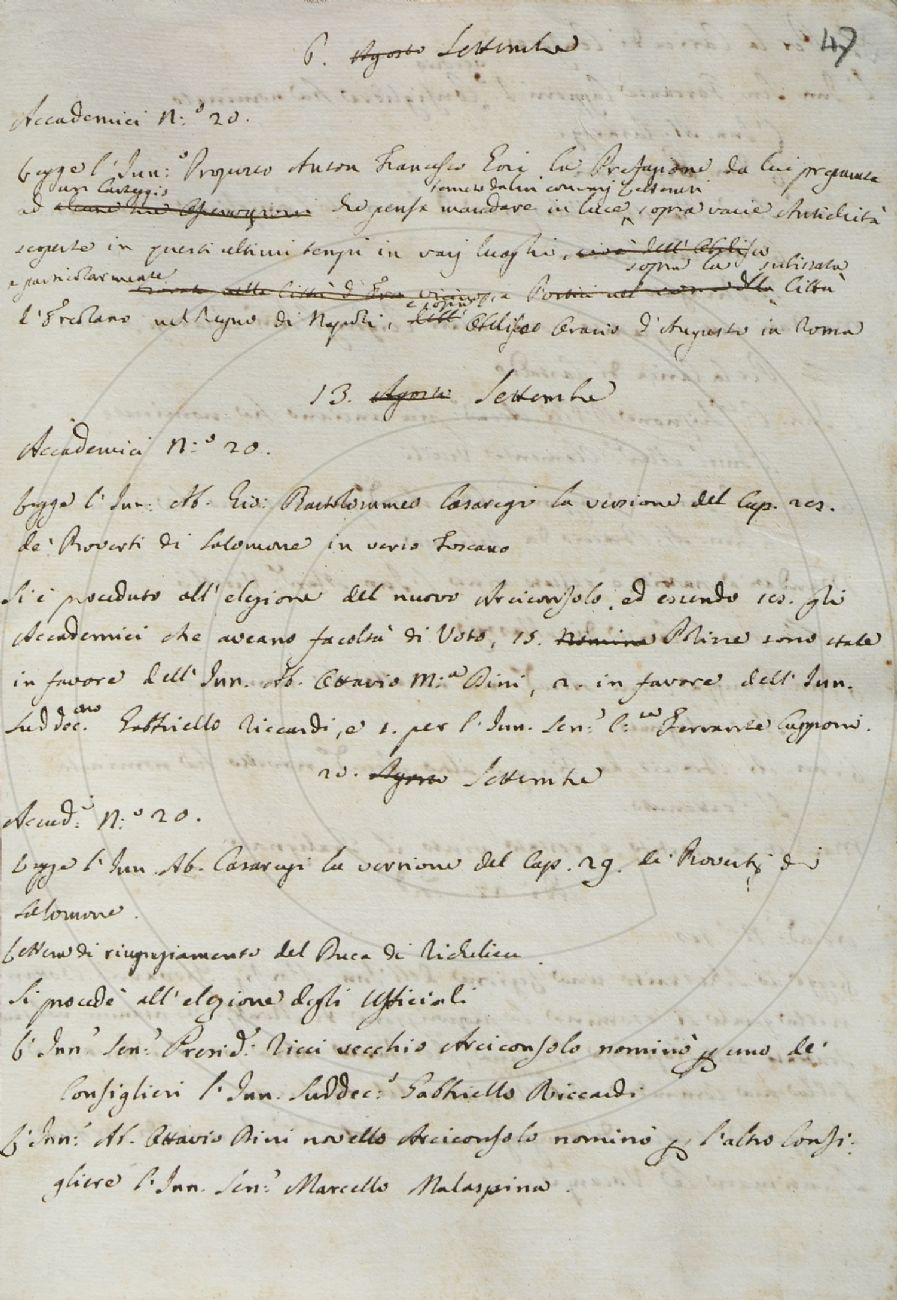 47
6. Agosto Settembre
Accademici N.º 20.
Legge l'Inn.º Proposto Anton Francesco Gori la Prefazione da lui preparata
un Carteggio tenuto da lui con varj Letterati
ad alcune sue che pensa mandare in luce sopra varie Antichità
scoperte in questi ultimi tempi in varj luoghi, cioè dell'Obelisco
e particolarmente sopra la subissata
trovate nella Città di vicino a Portici nel della Città
d'Ercolano nel Regno di Napoli, e sopra l' dell' Obelisco Orario d'Augusto in Roma
13. Agosto Settembre
Accademici N.º 20.
Legge l'Inn. Ab. Gio: Bartolommeo Casaregi la versione del Cap. 28.
de' Proverbi di Salomone in verso Toscano
Si è proceduto all'elezione del nuovo Arciconsolo, ed essendo 18. gli
Accademici che aveano facoltà di Voto, 15. Nomine Polizze sono state
in favore dell'Inn. Ab. Ottavio M.ª Bini, 2. in favore dell'Inn.
Suddec.no Gabbriello Riccardi, e 1. per l'Inn. Sen.e C.te Ferrante Capponi.
20. Agosto Settembre
Accad.i N.º 20.
Legge l'Inn. Ab. Casaregi la versione del Cap. 29. de' Proverbj di
Salomone.
Lettera di ringraziamento del Duca di Richelieu.
Si procedè all'elezione degli Ufficiali
L'Inn.e Sen.e Presid.e Ricci vecchio Arciconsolo nominò p uno de'
Consiglieri l'Inn. Suddec.o Gabbriello Riccardi
L'Inn.e Ab. Ottavio Bini novello Arciconsolo nominò p l'altro Consi-
gliere l'Inn. Sen.e Marcello Malaspina.